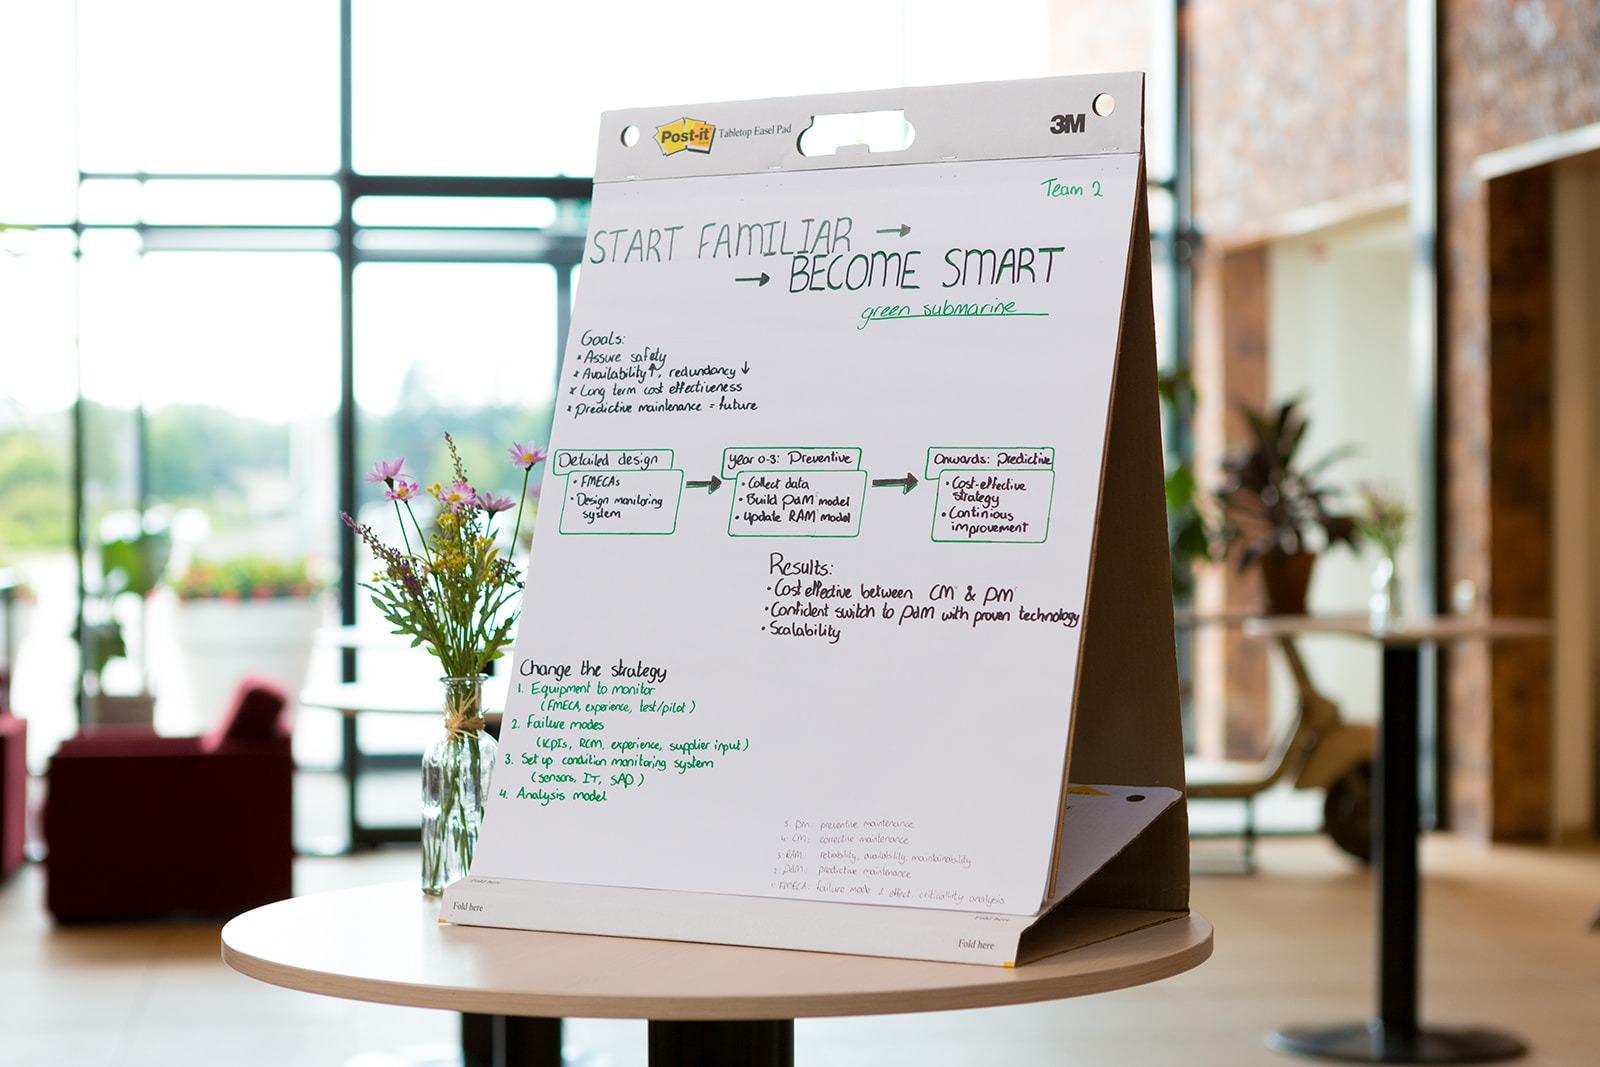 Post-it Tabletop Easel Pad
3M
Team 2
START FAMILIAR →
→ BECOME SMART
green submarine
Goals:
* Assure safety
* Availability ↑, redundancy ↓
* Long term cost effectiveness
* Predictive maintenance = future
Detailed design
• FMECAs
• Design monitoring
system
→
Year 0-3: Preventive
• Collect data
• Build PdM² model
• Update RAM³ model
→
Onwards: Predictive
• Cost-effective
strategy
• Continious
improvement
Results:
• Cost effective between CM⁴ & PM⁵
• Confident switch to PdM with proven technology
• Scalability
Change the strategy
1. Equipment to monitor
(FMECA, experience, test/pilot)
2. Failure modes
(KPIs, RCM, experience, supplier input)
3. Set up condition monitoring system
(sensors, IT, SAD)
4. Analysis model
5: PM: preventive maintenance
4: CM: corrective maintenance
3: RAM: reliability, availability, maintainability
2: PdM: predictive maintenance
1: FMECA: failure mode & effect, criticallity analysis
Fold here
Fold here
Fold here
Fold here